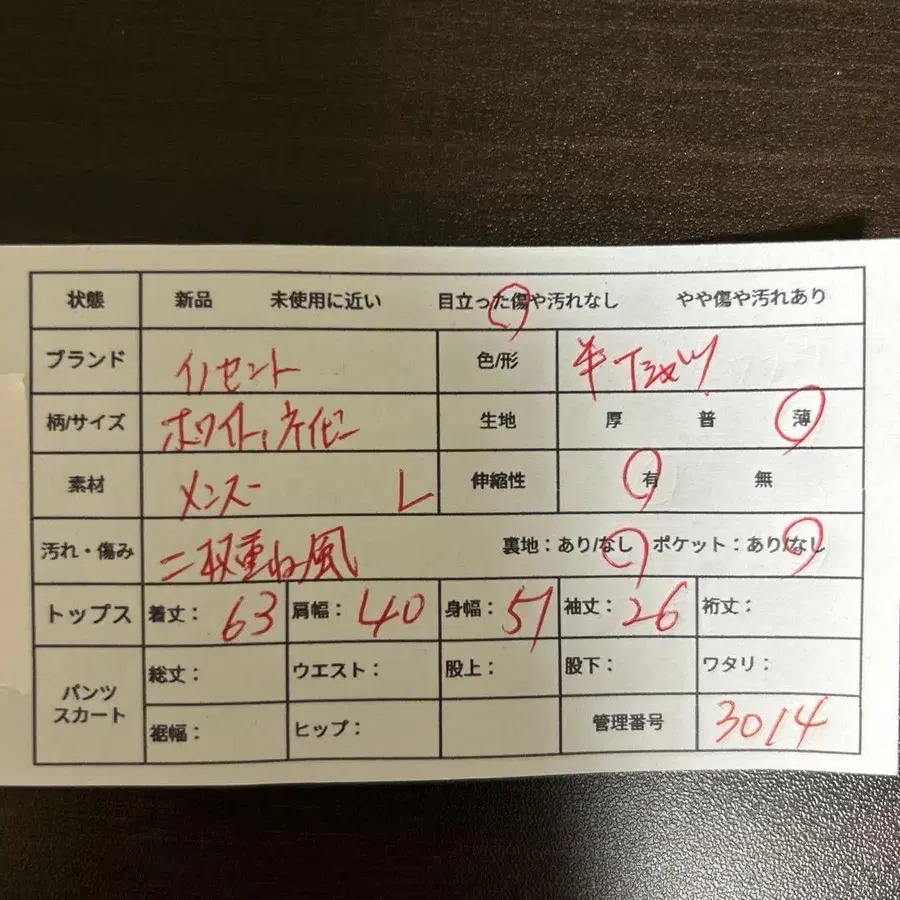 状態 新品 未使用に近い 目立った傷や汚れなし やや傷や汚れあり
ブランド イノセント 色/形 半Tシャツ
柄/サイズ ホワイト、ネイビー 生地 厚 普 薄
素材 メンズ L 伸縮性 有 無
汚れ・傷み 二枚重ね風 裏地：あり/なし ポケット：あり/なし
トップス 着丈： 63 肩幅： 40 身幅： 51 袖丈： 26 裄丈：
パンツ スカート 総丈： ウエスト： 股上： 股下： ワタリ：
裾幅： ヒップ： 管理番号 3014